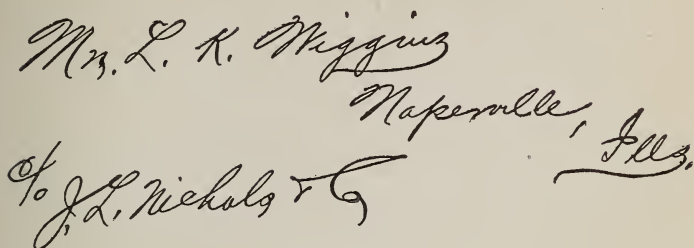 Mr. L. K. Wiggins
Naperville,
Ills.
c/o J. L. Nichols & Co